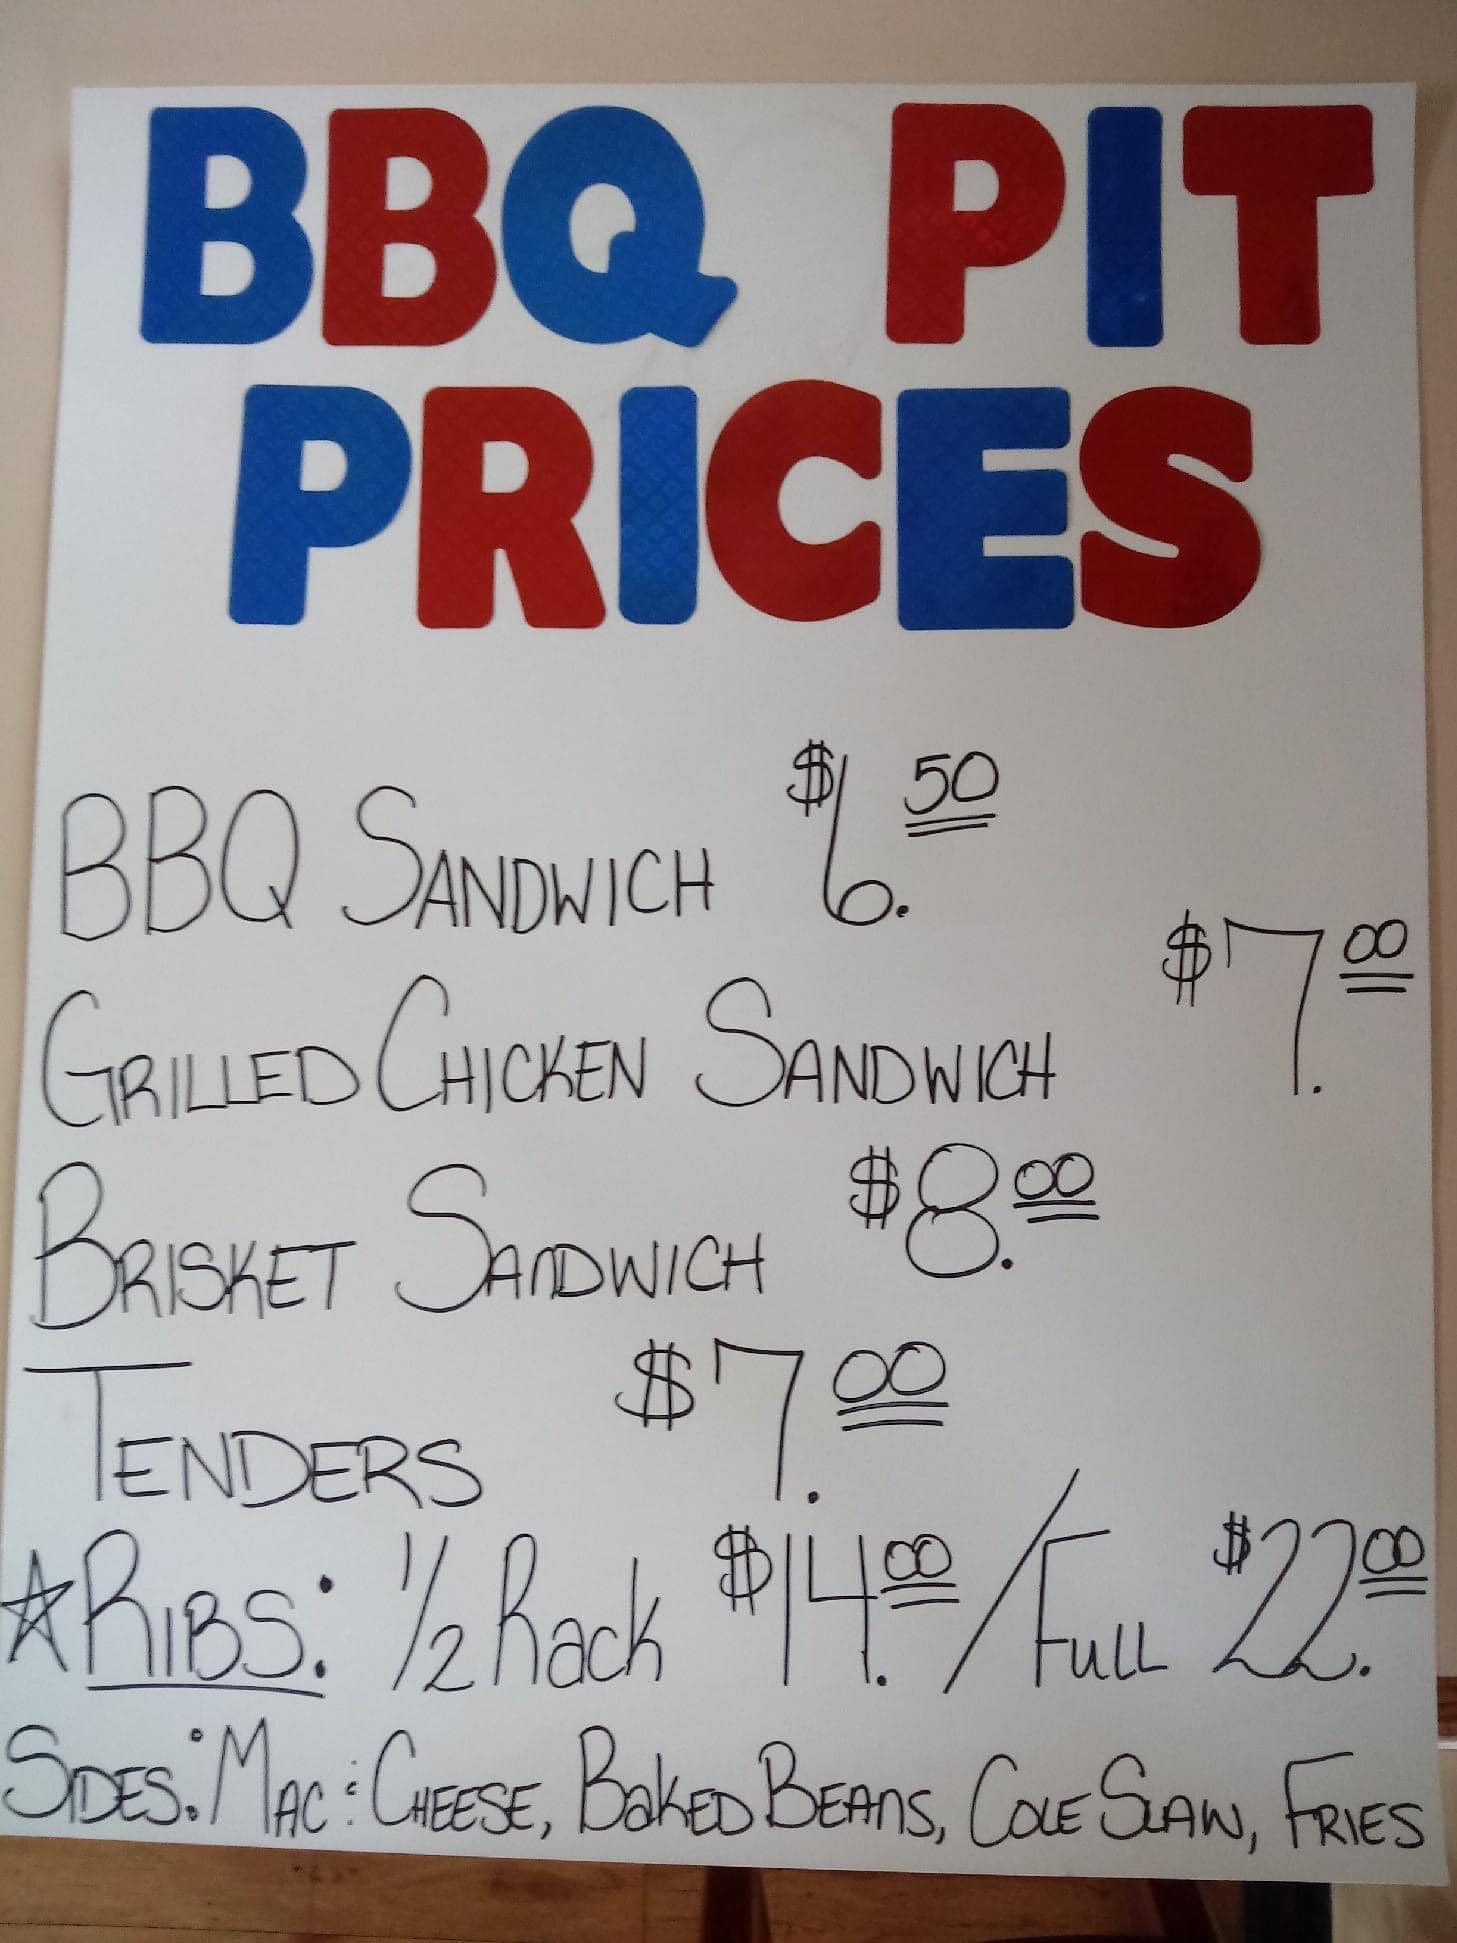 BBQ PIT
PRICES
BBQ SANDWICH $6.50
GRILLED CHICKEN SANDWICH $7.00
BRISKET SANDWICH $8.00
TENDERS $7.00
☆RIBS: 1/2 Rack $14.00/Full $22.00
SIDES: MAC & CHEESE, BAKED BEANS, COLE SLAW, FRIES